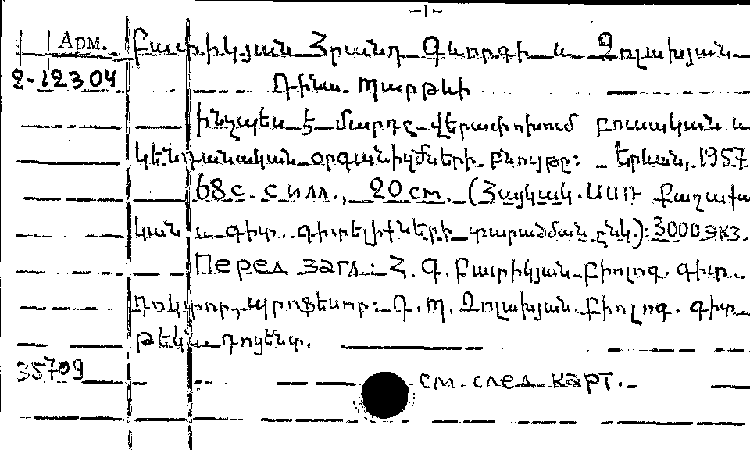 -1-
Арм. Բատիկյան Հրանդ Գևորգի և Չոլախյան
2-12304 Դինա Պարթևի
ինչպես է մարդը վերափոխում բուսական և
կենդանական օրգանիզմների բնույթը: Երևան, 1957
68с. с илл., 20 cm. (Հայկակ. ՍՍՌ քաղաքա
կան և գիտ. գիտելիքների տարածման ընկ): 3000 экз.
Перед загл: Հ. Գ. Բատիկյան բիոլոգ. գիտ.
դոկտոր, պրոֆեսոր: Դ. Պ. Չոլախյան. բիոլոգ. գիտ.
թեկն. դոցենտ.
35709 см. след карт.